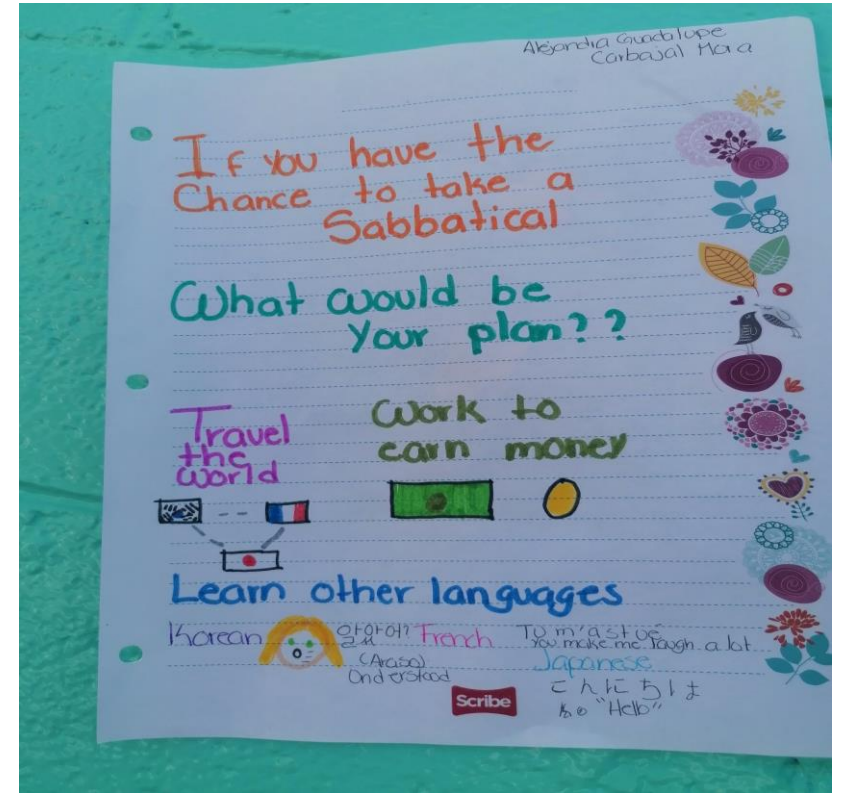 Alejandra Guadalupe
Carbajal Mora
If you have the
Chance to take a
Sabbatical
What would be
Your plan??
Travel
the
world
Work to
earn money
Learn other languages
Korean
French
(Araso)
Understood
Tu m'as tué
You make me laugh a lot
Japanese
こんにちは
"Hello"
Scribe